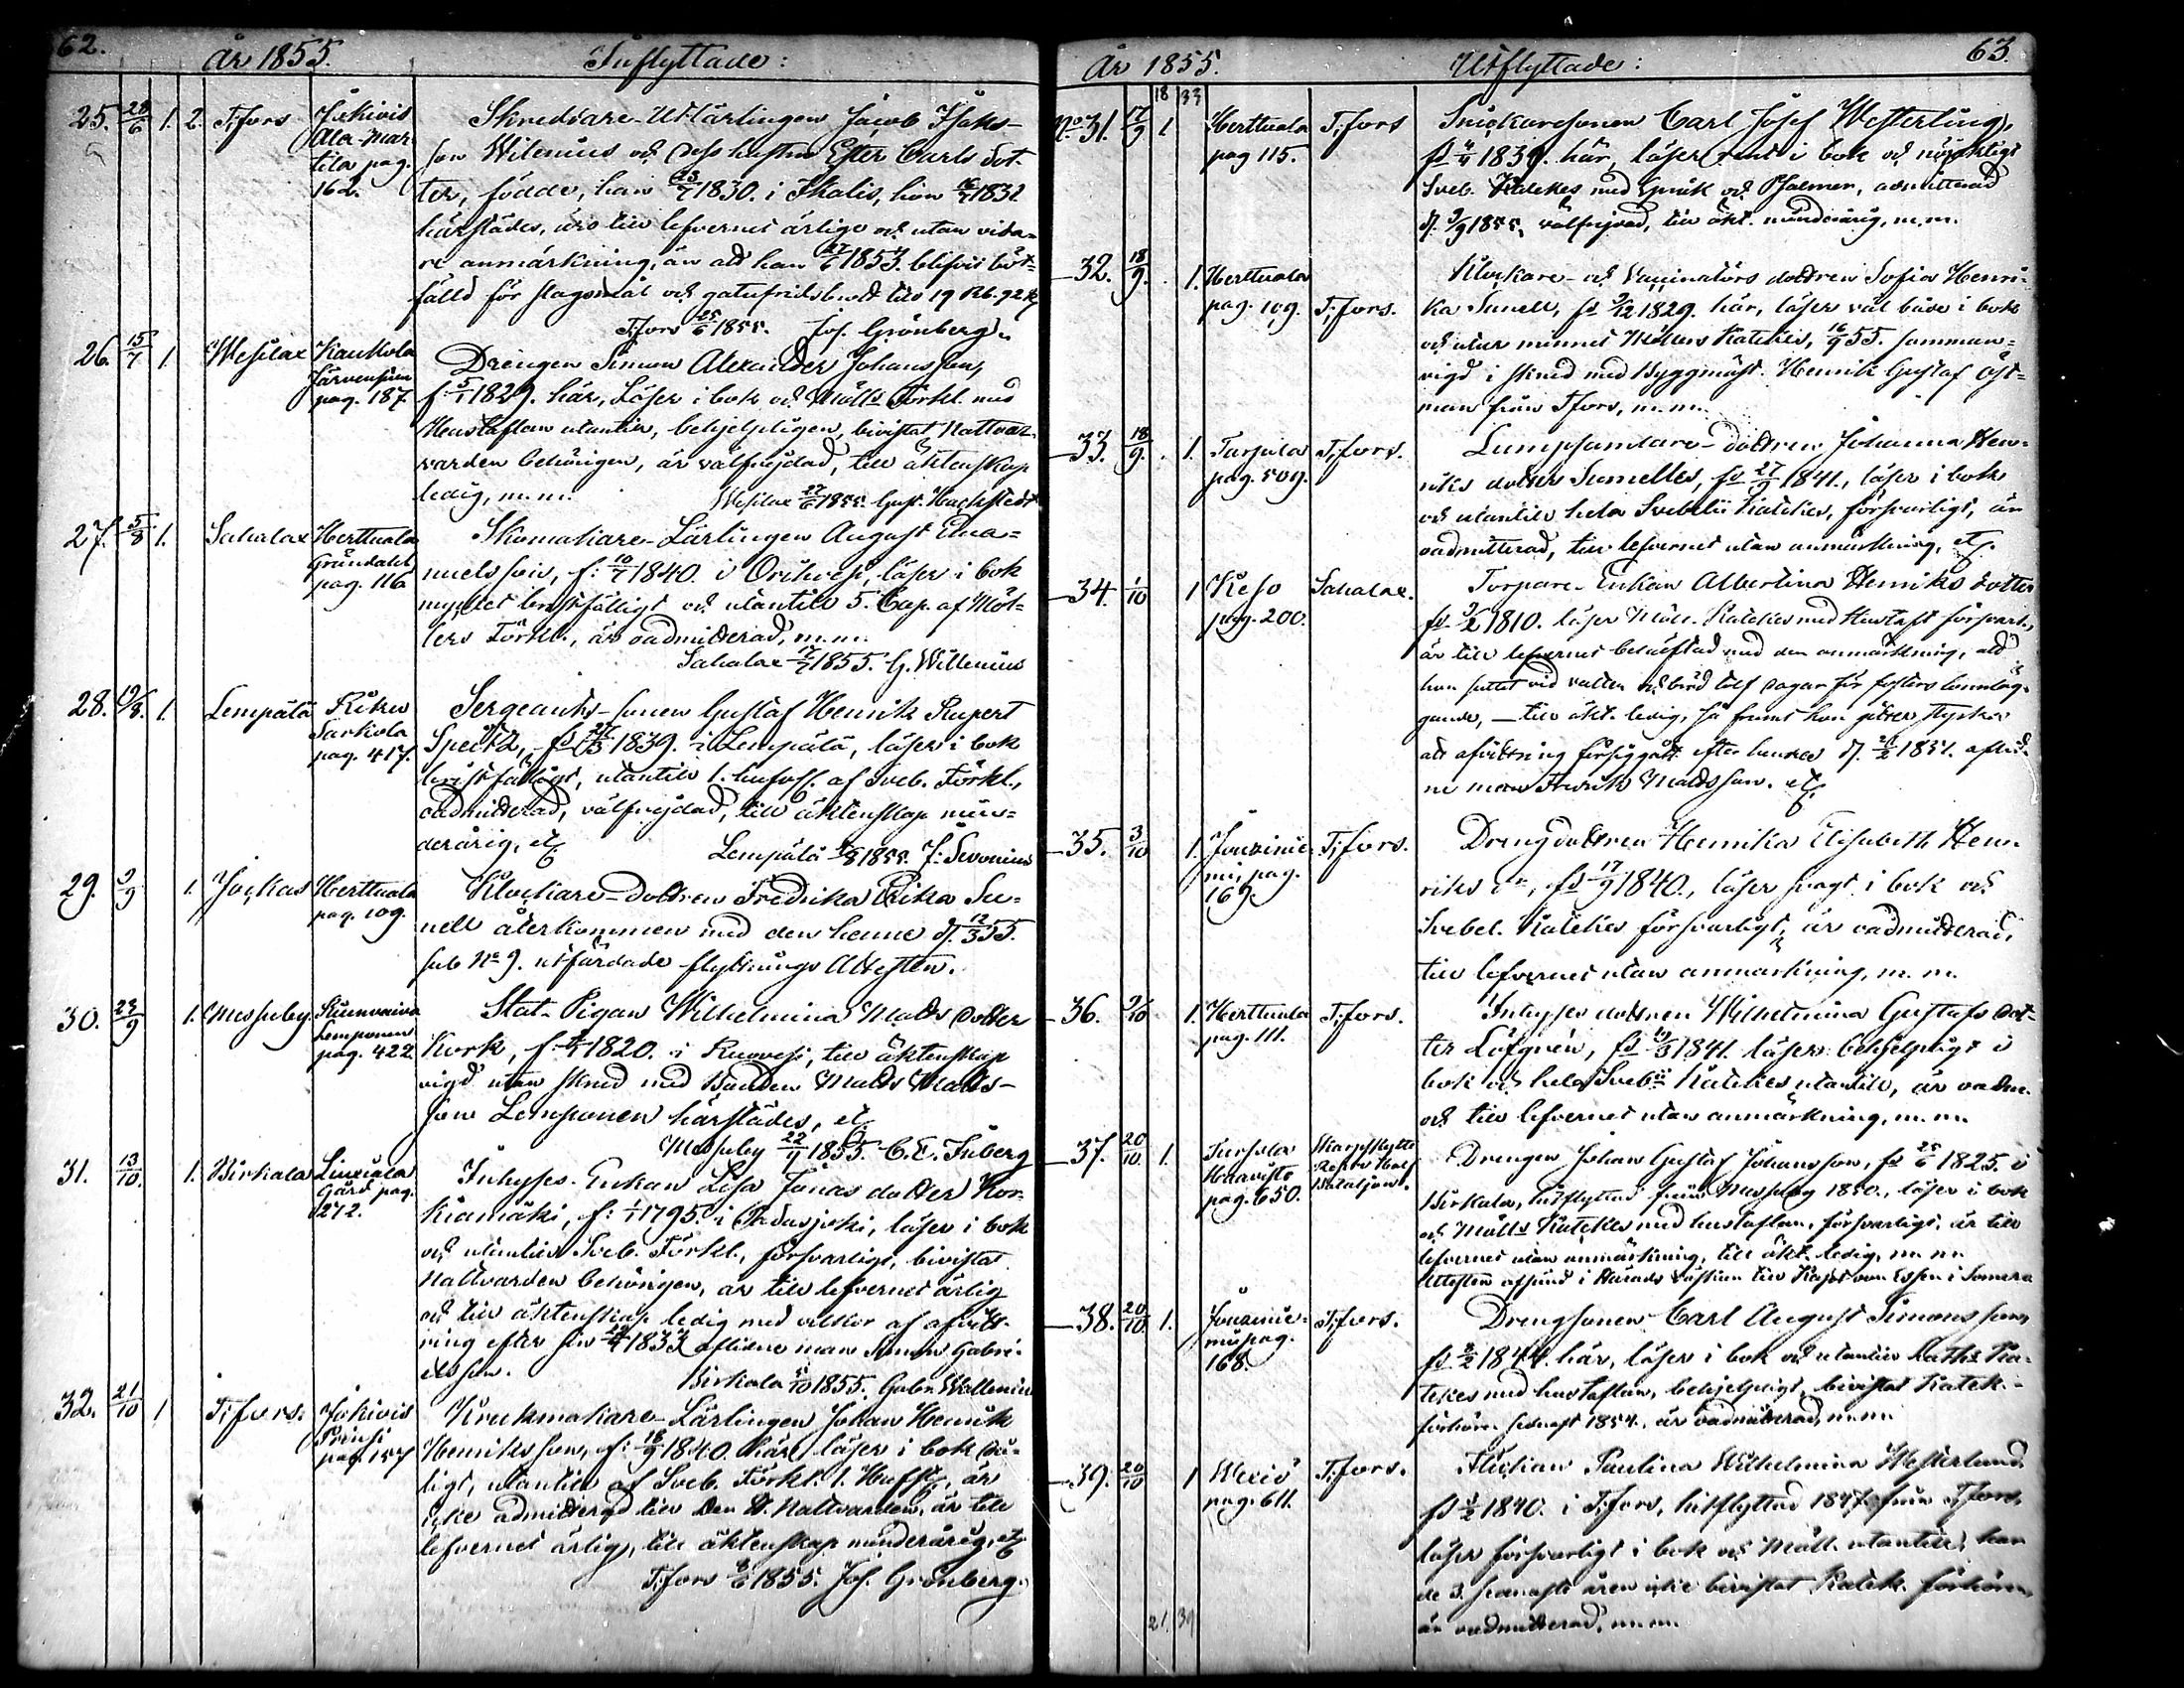 62.
År 1855. Inflyttade:
25. 28/6 1. 2. T:fors Jokivis Ala-Martila pag. 162.
Skreddare-Utlärlingen Jacob Isaks-
son Wilenius och dess hustru Ester Carls dot-
ter, födde, han 1830. i Ikalis, hon 1832
härstädes, äro till lefvernet ärlige och utan vida-
re anmärkning, än att han 27/6 1853. blifvit böt-
fälld för slagsmål och gatufridsbrott till 19 Rb. 92 k
T:fors 25/6 1855. Jos. Grönberg.
26. 15/7 1. Wesilax Kaukola Järvensivu pag. 187
Drengen Simon Alexander Johansson,
f: 5/1 1829. här, Läser i bok och Mölls Förkl. med
Hustaflan utantill, behjelpligen, bivistat Nattvar-
varden behörigen, är välfrejdad, till äktenskap
ledig, m.m. Wesilax 27/6 1855. Gust. Hackstedt
27. 5/8 1. Sahalax Herttuala Gråndahl pag. 116
Skomakare-Lärlingen August Ema-
nuelsson, f: 10/7 1840. i Orihvesi, läser i bok
mycket bristfälligt och utantill 5. Cap. af Möl-
lers Förkl., är oadmitterad, m.m.
Sahalax 17/7 1855. G. Willenius
28. 19/8. 1. Lempälä Rikru Sarkola pag. 417.
Sergeants-sonen Gustaf Henrik Rupert
Speitz, fd 1839. i Lempälä, läser i bok
bristfälligt, utantill 1. hufvst. af Sveb. Förkl.,
oadmitterad, välfrejdad, till äktenskap min-
derårig, etc. Lempälä 1855. J: Sevonius
29. 9/9 1. Jockas Herttuala pag. 109.
Klockare-Dottren Fredrika Erika Su-
nell återkommen med den henne d. 12/3 55.
sub No 9. utfärdade flyttnings Attesten.
30. 23/9 1. Messuby Lemponen pag. 422
Stat-Pigan Wilhelmina Matts dotter
Kork, f: 1820. i Ruovesi, till äktenskap
vigd utan skrud med Bonden Matts Matts-
son Lemponen härstädes, etc.
Messuby 22/9 1855. C. E. Inberg
31. 13/10. 1. Birkala Liuxiala Gård pag. 272.
Inhyses-Enkan Lisa Jonas dotter Kor-
kiamäki, f: 1/1 1795. i Padasjoki, läser i bok
och utantill Sveb. Förkl., försvarligt, bivistat
Nattvarden behörigen, är till lefvernet ärlig
och till äktenskap ledig med vilkor af afvitt-
ring efter sin 1833 aflidne man Simon Gabri-
elsson. Birkala 5/10 1855. Gabr. Wallenius
32. 21/10 1. T:fors. Jokivis Prinsi pag. 157
Krukmakare-Lärlingen Johan Henrik
Henriksson, f: 18/9 1840. här, läser i bok då-
ligt, utantill af Sveb. Förkl. 1. Hufst., är
icke admitterad till Den H. Nattvarden, är till
lefvernet ärlig, till äktenskap minderårig, etc.
T:fors 1855. Jos. Grönberg.
År 1855. Utflyttade: 63.
18 33
No 31. 17/9 1 Herttuala pag 115. T:fors
Snickaresonen Carl Josef Westerling,
fd 1839. här, läser rent i bok och nöjaktigt
Sveb. Katekes med Språk och Psalmer, admitterad
d. 9/9 1855, välfrejdad, till äkt. minderårig, m.m.
32. 18/9. 1. Herttuala pag. 109. T:fors.
Klockare- och Vaccinatörs dottren Sofia Henri-
ka Sunell, fd 9/12 1829. här, läser väl både i bok
och utur minnet Möllers Katekes, 16/9 55. samman-
vigd i skrud med Byggmäst. Henrik Gustaf Öst-
man från T:fors, m.m.
33. 18/9. 1. Tarpila pag. 509. T:fors.
Lumpsamlare-dottren Johanna Hen-
riks dotter Sumelles, fd 27/9 1841., läser i bok
och utantill hela Svebilii Katekes, försvarligt, är
oadmitterad, till lefvernet utan anmärkning, etc.
34. 1/10 1 Keso pag. 200. Sahalax.
Torpare-Enkan Albertina Henriks dotter
fd 9/2 1810. läser Möll. Katekes med Hustafl försvarl.,
är till lefvernet med den anmärkning, att
hon suttit vid vatten och bröd tolf dagar för fosters lönnläg-
gande, — till äkt. ledig, så framt hon gitter styrka
att afvittring försiggått efter hennes d. 1851. aflid-
ne man Fredrik Mattsson. etc.
35. 3/10 1. Jouxinie-mi, pag. 169. T:fors.
Drengdottren Henrika Elisabeth Hen-
riks dr, fd 17/9 1840., läser svagt i bok och
Svebel. Katekes försvarligt, är oadmitterad,
till lefvernet utan anmärkning, m.m.
36. 9/10 1. Herttuala pag. 111. T:fors.
Inhyses dottren Wilhelmina Gustafs dot-
ter Löfgrén, fd 10/3 1841. läser behjelpligt i
bok och hela Sveb:ii Katekes utantill, är oadm.
och till lefvernet utan anmärkning, m.m.
37. 20/10. 1. Tursola Haavisto pag. 650. Skarpskytte Reserv Bataljon.
Drengen Johan Gustaf Johansson, fd 25/6 1825. i
Birkala, hitflyttad från Messuby 1850., läser i bok
och Mölls Katekes med hustaflan, försvarligt, är till
lefvernet utan anmärkning, till äkt. ledig, m.m.
Attesten afsänd i Härads till Kapt von Essen i Somero
38. 20/10. 1. Jouxinie-mi pag. 168. T:fors.
Drengsonen Carl August Simonsson,
fd 1844. här, läser i bok och utantill Ka-
tekes med hustaflan, behjelpligt, bivistat Katek.-
förhören sednast 1854. är oadmitterad, m.m.
39. 20/10 1 Wexiö pag. 611. T:fors.
Flickan Paulina Wilhelmina Westerlund
fd 1840. i T:fors, hitflyttad 1847 från T:fors,
läser försvarligt i bok och Möll. utantill, har
de 3. sednaste åren icke bivistat Katek. förhören,
är oadmitterad, m.m.
21. 39